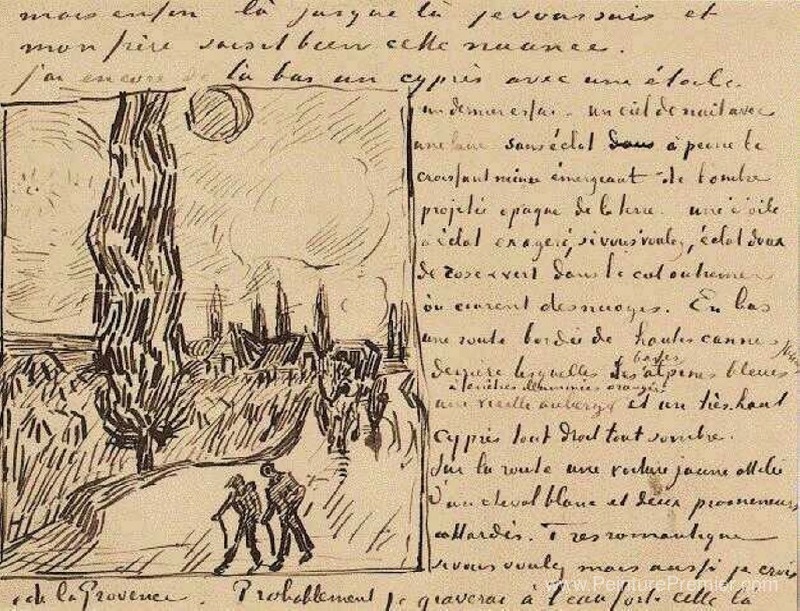 mais enfin là jusque là je vous suis et
mon frère saisit bien cette nuance.
j'ai encore de là bas un cyprès avec une étoile
un dernier essai - un ciel de nuit avec
une lune sans éclat dans à peine le
croissant mince émergeant de l'ombre
projetée opaque de la terre. une étoile
à éclat exageré, si vous voulez, éclat doux
de rose & vert dans le ciel outremer
où courent des nuages. En bas
une route bordée de hautes cannes
derrière lesquelles les basses alpines bleues
à fenêtres illuminées orangé
une vieille auberge et un très haut
cyprès tout droit tout sombre.
Sur la route une voiture jaune attelée
d'un cheval blanc et deux promeneurs
attardés. Très romantique
si vous voulez mais aussi je crois
de la Provence. Probablement je graverai à l'eau forte celle là
www.PeinturePremier.com